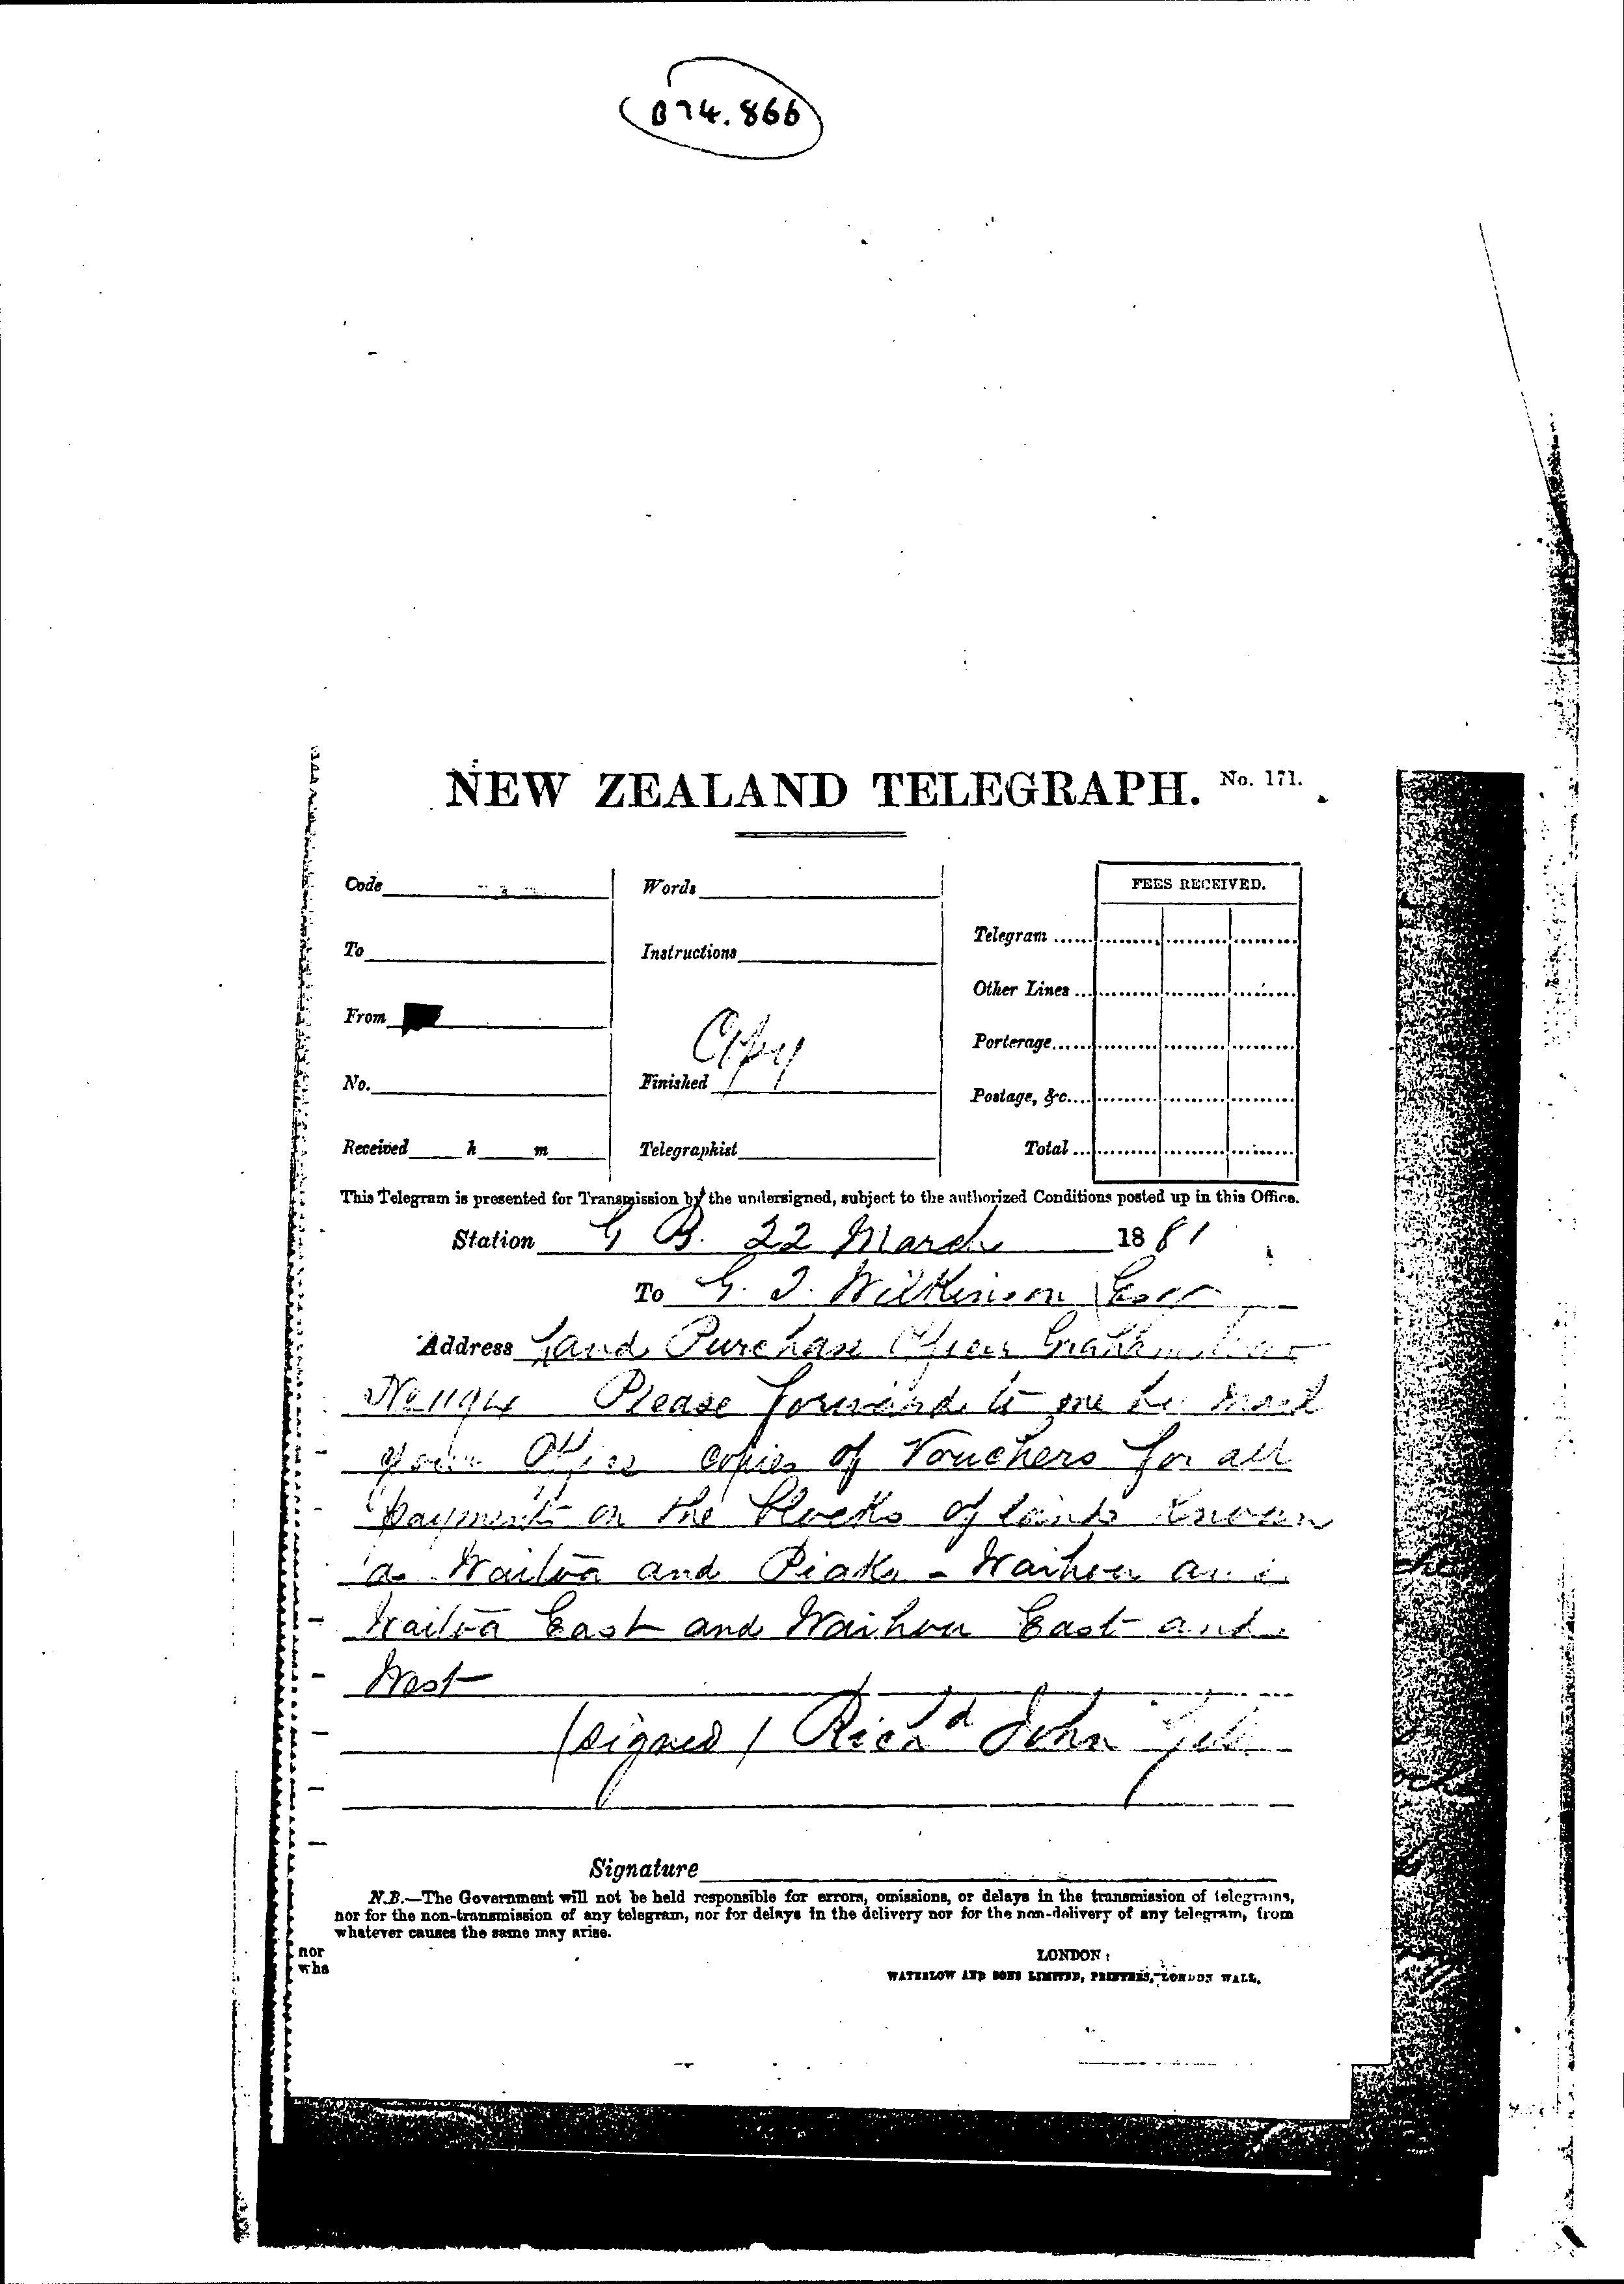 074.866
NEW ZEALAND TELEGRAPH. No. 171.
Code Words FEES RECEIVED.
To Instructions Telegram
Other Lines
From Copy
Porterage
No. Finished
Postage, &c.
Received h m Telegraphist Total
This Telegram is presented for Transmission by the undersigned, subject to the authorized Conditions posted up in this Office.
Station G B. 22 March 1881
To G. T. Wilkinson Esqr
Address Land Purchase Officer Grahamstown
No 1194 Please forward to me by mail
your Office copies of Vouchers for all
payments on the blocks of lands known
as Waitoa and Piako - Waihou and
Waitoa East and Waihou East and
West
(signed) Richd John Gill
Signature
N.B.—The Government will not be held responsible for errors, omissions, or delays in the transmission of telegrams,
nor for the non-transmission of any telegram, nor for delays in the delivery nor for the non-delivery of any telegram, from
whatever causes the same may arise.
nor
wha
LONDON:
WATERLOW AND SONS LIMITED, PRINTERS, LONDON WALL.